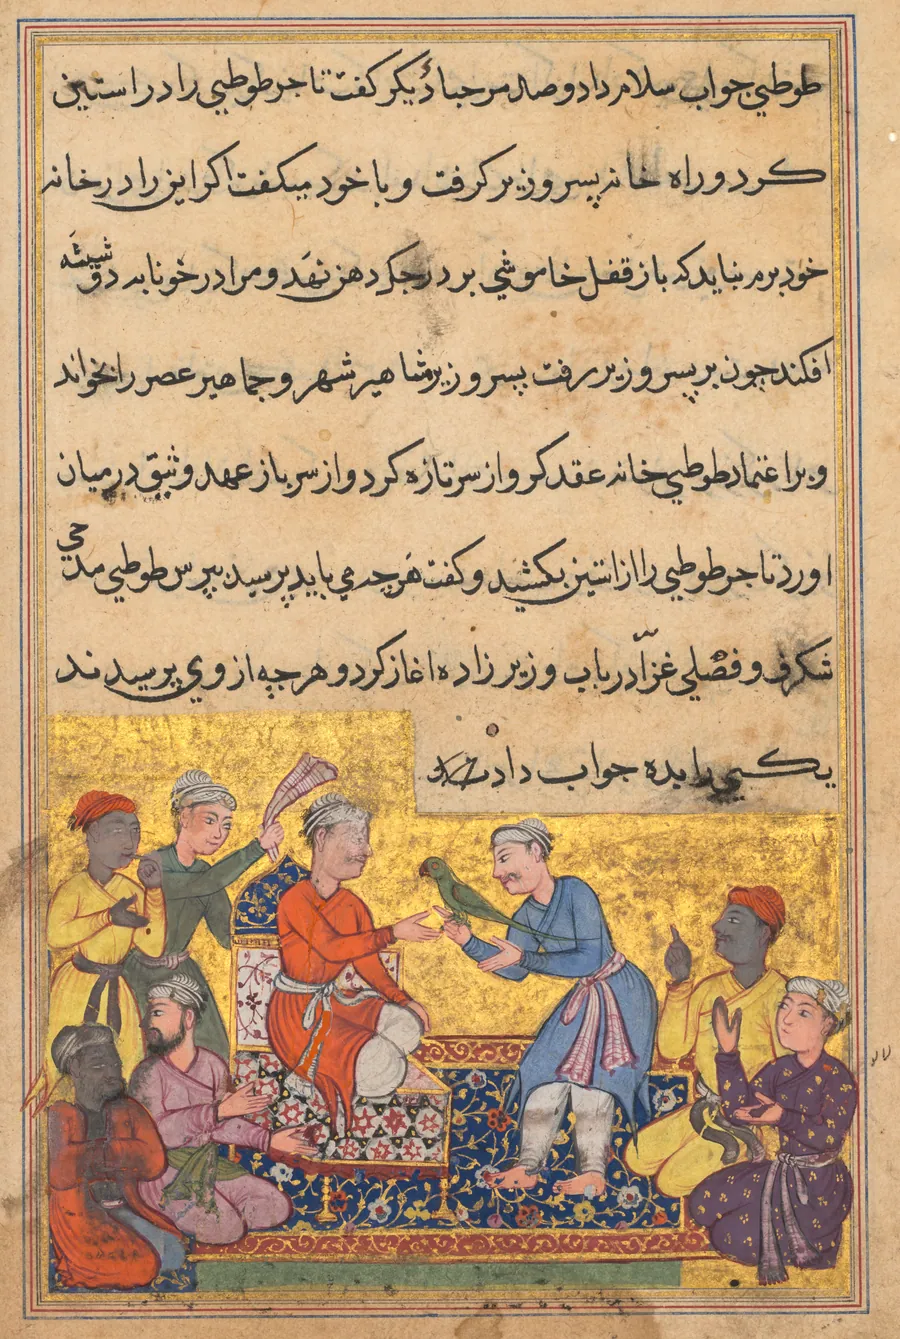 طوطیي جواب سلام داد و صد مرحبا دیکر کفت تاجر طوطیي را در استین
کرد و راه خانه پسر وزیر کرفت و با خود میکفت اکر این را در خانه
خود برم نباید که باز قفل خاموشي بر درجک دهن نهد و مرا در خونابه دقیشه
افکند چون بر پسر وزیر رفت پسر وزیر مشاهیر شهر و جماهیر عصر را بخواند
و برا عتماد طوطیي خانه عقد کرو از سر تازه کرد و از سر باز عهد وثیق در میان
اورد تا جر طوطیي را از استین بکشید و کفت هرچه مي باید پرسید بپرس طوطیي مدحي
شکرف و فصلي غرّا در باب وزیر زاده اغاز کرد و هر چه از وي پرسیدند
یکیي را بده جواب داد